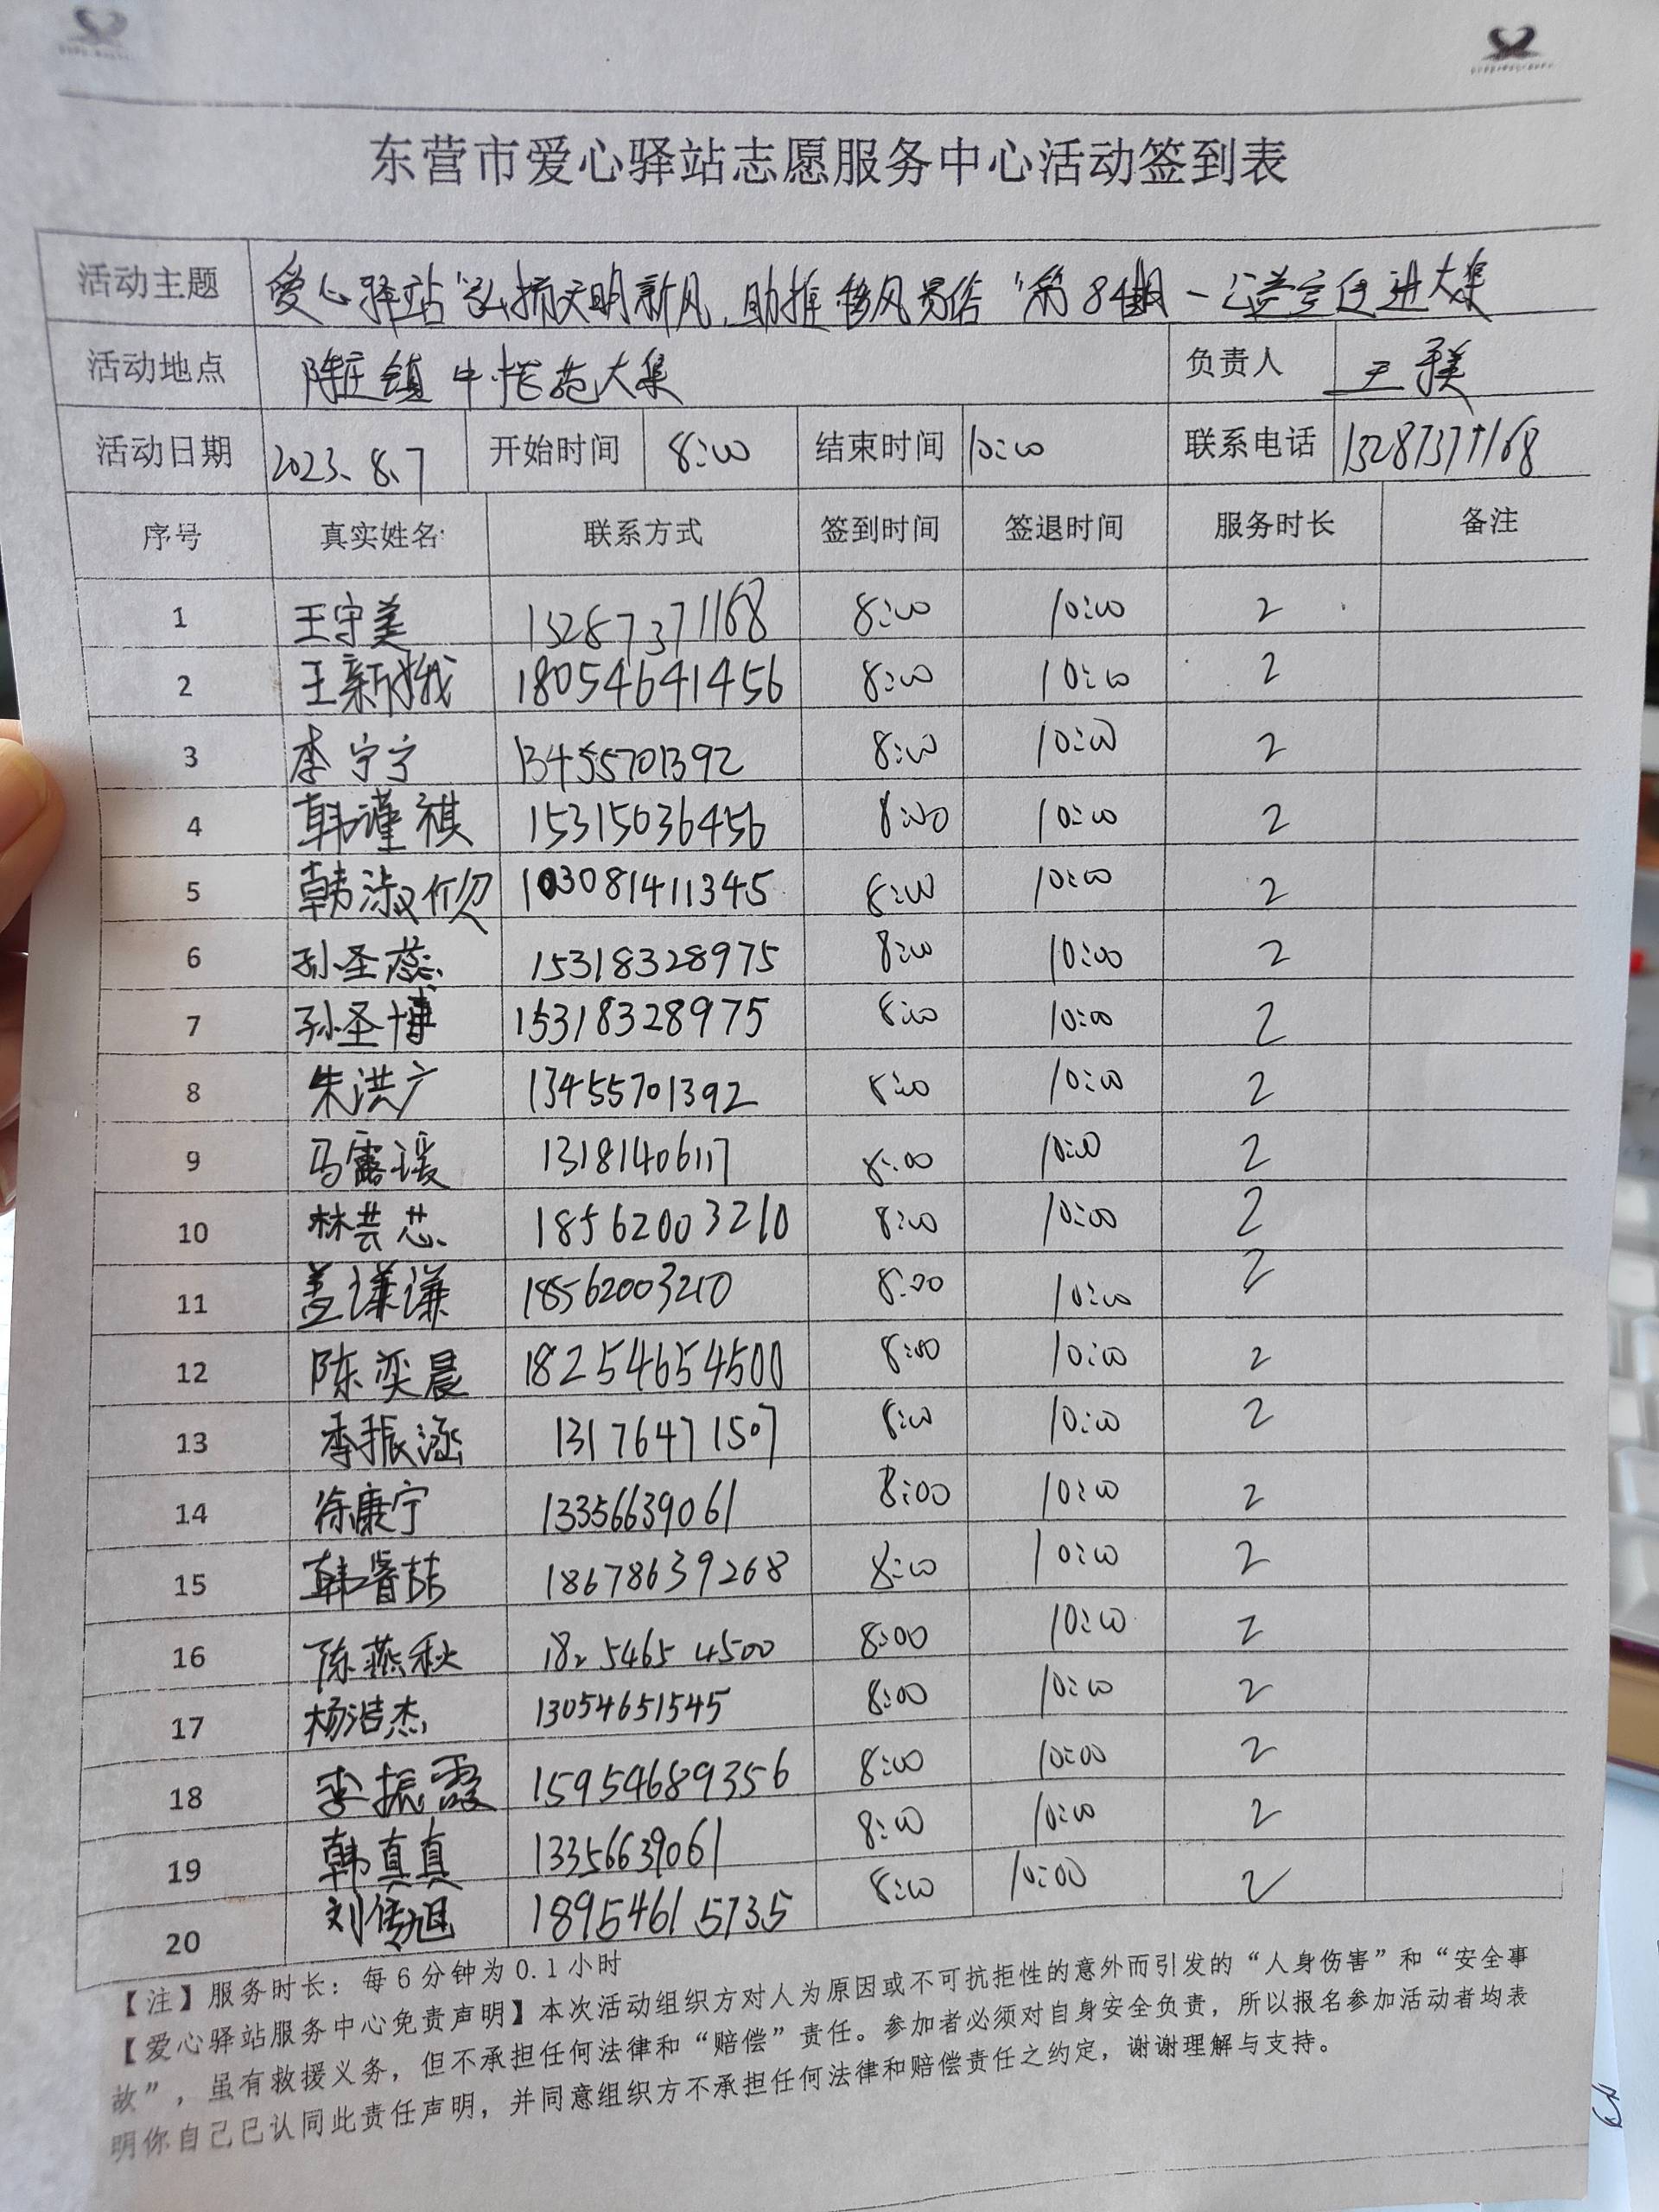 东营市爱心驿站志愿服务中心活动签到表
活动主题 爱心驿站"弘扬文明新风,助推移风易俗"第84期－公益宣传进大集
活动地点 陈庄镇中 大集 负责人 王守美
活动日期 2023.8.7 开始时间 8:00 结束时间 10:00 联系电话 13287371168
序号 真实姓名 联系方式 签到时间 签退时间 服务时长 备注
1 王守美 13287371168 8:00 10:00 2
2 王新娥 18054641456 8:00 10:00 2
3 李宁宁 13455701392 8:00 10:00 2
4 韩谨祺 15315036456 8:00 10:00 2
5 韩淑欣 103081411345 8:00 10:00 2
6 孙圣蕊 15318328975 8:00 10:00 2
7 孙圣博 15318328975 8:00 10:00 2
8 朱洪广 13455701392 8:00 10:00 2
9 马露瑗 13181406117 8:00 10:00 2
10 林芸芯 18562003210 8:00 10:00 2
11 盖谦谦 18562003210 8:00 10:00 2
12 陈奕晨 18254654500 8:00 10:00 2
13 李振涵 13176471507 8:00 10:00 2
14 徐康宁 13356639061 8:00 10:00 2
15 韩睿喆 18678639268 8:00 10:00 2
16 陈燕秋 18254654500 8:00 10:00 2
17 杨浩杰 13054651545 8:00 10:00 2
18 李振霞 15954689356 8:00 10:00 2
19 韩真真 13356639061 8:00 10:00 2
20 刘传旭 18954615735 8:00 10:00 2
【注】服务时长：每6分钟为0.1小时
【爱心驿站服务中心免责声明】本次活动组织方对人为原因或不可抗拒性的意外而引发的“人身伤害”和“安全事
故”，虽有救援义务，但不承担任何法律和“赔偿”责任。参加者必须对自身安全负责，所以报名参加活动者均表
明你自己已认同此责任声明，并同意组织方不承担任何法律和赔偿责任之约定，谢谢理解与支持。